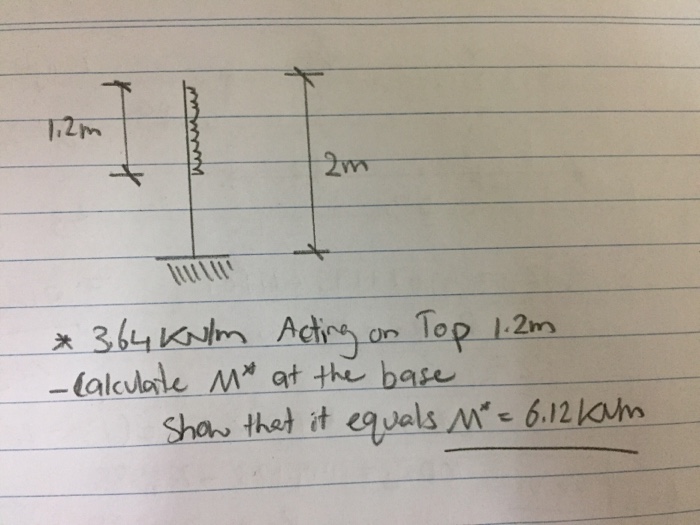 1.2m
2m
* 3.64 KN/m Acting on Top 1.2m
- Calculate M* at the base
Show that it equals M* = 6.12 kNm